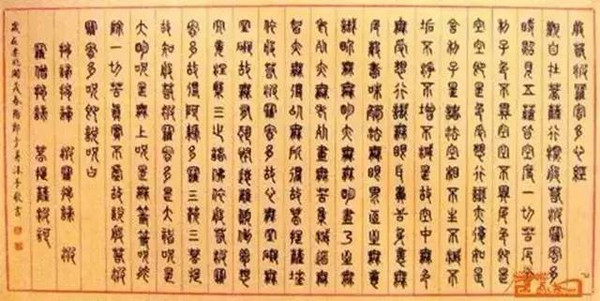 般若波羅蜜多心經
觀自在菩薩行深般若波羅蜜多
時照見五蘊皆空度一切苦厄舍
利子色不異空空不異色色即是
空空即是色受想行識亦復如是
舍利子是諸法空相不生不滅不
垢不淨不增不減是故空中無色
無受想行識無眼耳鼻舌身意無
色聲香味觸法無眼界乃至無意
識界無無明亦無無明盡乃至無
老死亦無老死盡無苦集滅道無
智亦無得以無所得故菩提薩埵
依般若波羅蜜多故心無罣
礙無罣礙故無有恐怖遠離顛倒夢想
究竟涅槃三世諸佛依般若波羅
蜜多故得阿耨多羅三藐三菩提
故知般若波羅蜜多是大神咒是
大明咒是無上咒是無等等咒能
除一切苦真實不虛故說般若波
羅蜜多咒即說咒曰
揭諦揭諦 波羅揭諦 波
羅僧揭諦 菩提薩婆訶
沐手敬書